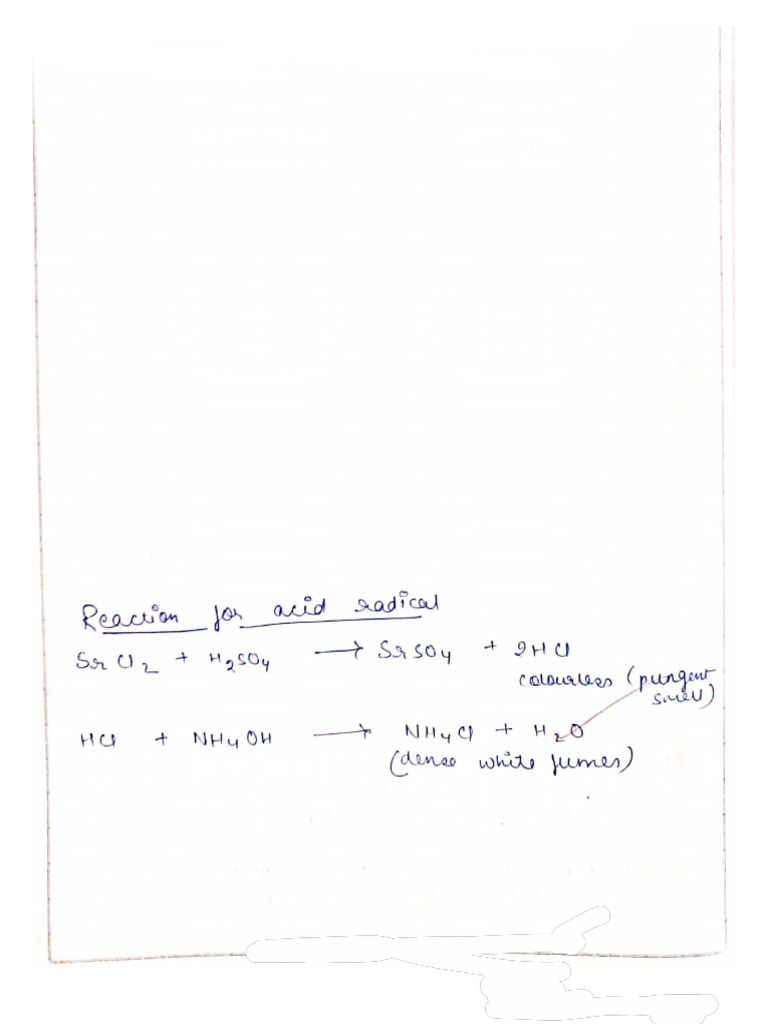 Reaction for acid radical
SrCl2 + H2SO4 → SrSO4 + 2HCl
colourless (pungent
smell)
HCl + NH4OH → NH4Cl + H2O
(dense white fumes)